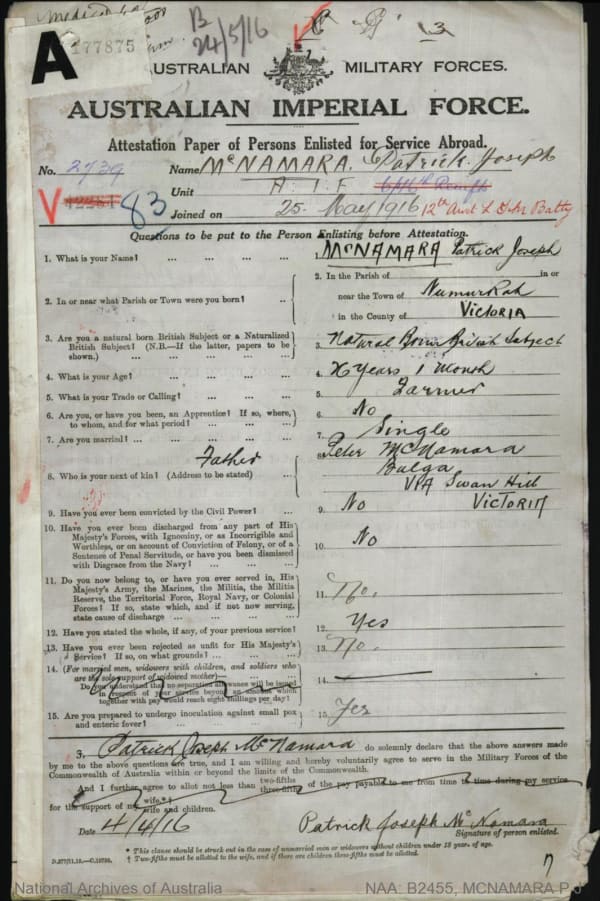 B
24/5/16
A
177875
13
AUSTRALIAN MILITARY FORCES.
AUSTRALIAN IMPERIAL FORCE.
Attestation Paper of Persons Enlisted for Service Abroad.
No. 2739 Name McNAMARA. Patrick Joseph
83 Unit A I F
Joined on 25 May 1916 12th Aust L
Questions to be put to the Person Enlisting before Attestation.
1. What is your Name? ... ... ... ... 1. McNAMARA Patrick Joseph
2. In or near what Parish or Town were you born? .. 2. In the Parish of in or
near the Town of Numurkah
in the County of VICTORIA
3. Are you a natural born British Subject or a Naturalized
British Subject? (N.B.—If the latter, papers to be
shown.) ... ... ... ... 3. Natural Born British Subject
4. What is your Age? ... ... ... ... 4. 26 Years 1 Month
5. What is your Trade or Calling? ... ... ... 5. Farmer
6. Are you, or have you been, an Apprentice? If so, where,
to whom, and for what period? ... ... ... 6. No
7. Are you married? ... ... ... ... 7. Single
8. Who is your next of kin? (Address to be stated) ... Father 8. Peter McNamara
Balga
VIA Swan Hill
VICTORIA
9. Have you ever been convicted by the Civil Power? ... 9. No
10. Have you ever been discharged from any part of His
Majesty's Forces, with Ignominy, or as Incorrigible and
Worthless, or on account of Conviction of Felony, or of a
Sentence of Penal Servitude, or have you been dismissed
with Disgrace from the Navy? ... ... ... 10. No
11. Do you now belong to, or have you ever served in, His
Majesty's Army, the Marines, the Militia, the Militia
Reserve, the Territorial Force, Royal Navy, or Colonial
Forces? If so, state which, and if not now serving,
state cause of discharge ... ... ... 11. No.
12. Have you stated the whole, if any, of your previous service? 12. Yes
13. Have you ever been rejected as unfit for His Majesty's
Service? If so, on what grounds? ... ... ... 13. No.
14. (For married men, widowers with children, and soldiers who
are the sole support of widowed mother)—
Do you understand that no separation allowance will be issued
in respect of your service beyond an amount which
together with pay would reach eight shillings per day? 14.
15. Are you prepared to undergo inoculation against small pox
and enteric fever? ... ... ... ... 15. Yes
I, Patrick Joseph McNamara do solemnly declare that the above answers made
by me to the above questions are true, and I am willing and hereby voluntarily agree to serve in the Military Forces of the
Commonwealth of Australia within or beyond the limits of the Commonwealth.
And I further agree to allot not less than two-fifths three-fifths of the pay payable to me from time to time during my service
for the support of my wife.*† wife and children.
Date 4/4/16 Patrick Joseph McNamara
Signature of person enlisted.
* This clause should be struck out in the case of unmarried men or widowers without children under 18 years of age.
† Two-fifths must be allotted to the wife, and if there are children three-fifths must be allotted.
National Archives of Australia NAA: B2455, MCNAMARA P J